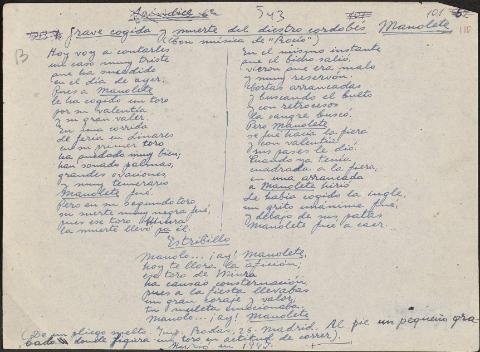 Apéndice 6º
543
101
Grave cogida y muerte del diestro cordobés Manolete
(Con música de "Rocío")
Hoy voy a contarles
un caso muy triste
que ha sucedido
en el día de ayer.
Pues a Manolete
le ha cogido un toro
por su valentía
y su gran valer.
En una corrida
de feria en Linares
en su primer toro
ha quedado muy bien;
han sonado palmas,
grandes ovaciones,
y muy temerario
Manolete fué.
Pero en su segundo toro
su suerte muy negra fué,
pues ese toro Miura
la muerte llevó pa él.
En el mismo instante
que el bicho salió,
vieron que era malo
y muy reservón;
Cortas arrancadas
y buscando el bulto
y con retrocesos
la sangre buscó.
Pero Manolete
se fué hacia la fiera
y con valentía
sus pases le dió.
Cuando ya tenía
cuadrada a la fiera,
en una arrancada
a Manolete hirió
Le había cogido la ingle,
un grito unánime fué,
y debajo de sus patas
Manolete fué a caer.
Estribillo
Manolo... ¡ay! Manolete,
hoy te llora la afición;
ese toro de Miura
ha causao consternación
pues a la fiesta llevabas
un gran coraje y valor,
tu muleta emocionaba.
Manolo... ¡ay! Manolete
(De un pliego suelto. Imp. Rodas, 26. Madrid. Al pie un pequeño gra-
bado donde figura un toro en actitud de correr).
Murió en 1947.